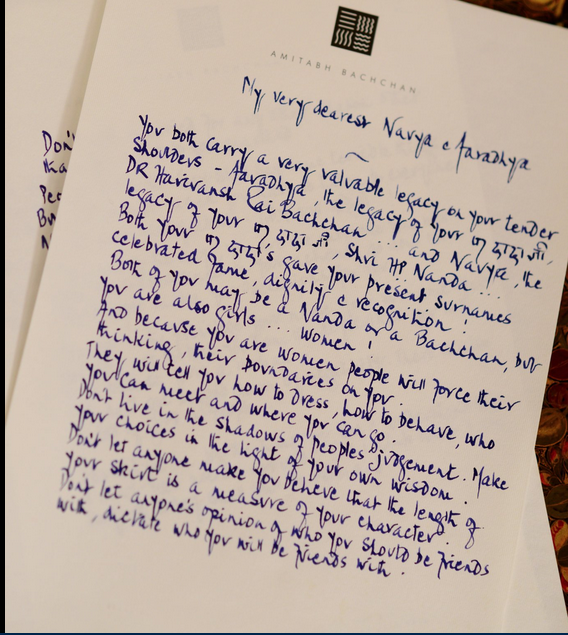 AMITABH BACHCHAN
My very dearest Navya & Aaradhya
You both carry a very valuable legacy on your tender
shoulders - Aaradhya, the legacy of your दादा जी,
DR Harivansh Rai Bachchan ... and Navya, the
legacy of your दादा जी, Shri HP Nanda ...
Both your दादाजी's gave your present surnames
celebrated fame, dignity & recognition!
Both of you may be a Nanda or a Bachchan, but
you are also girls ... women!
And because you are women people will force their
thinking, their boundaries on you.
They will tell you how to dress, how to behave, who
you can meet and where you can go.
Don't live in the shadows of peoples judgement. Make
your choices in the light of your own wisdom.
Don't let anyone make you believe that the length of
your skirt is a measure of your character.
Don't let anyone's opinion of who you should be friends
with, dictate who you will be friends with.
Don'